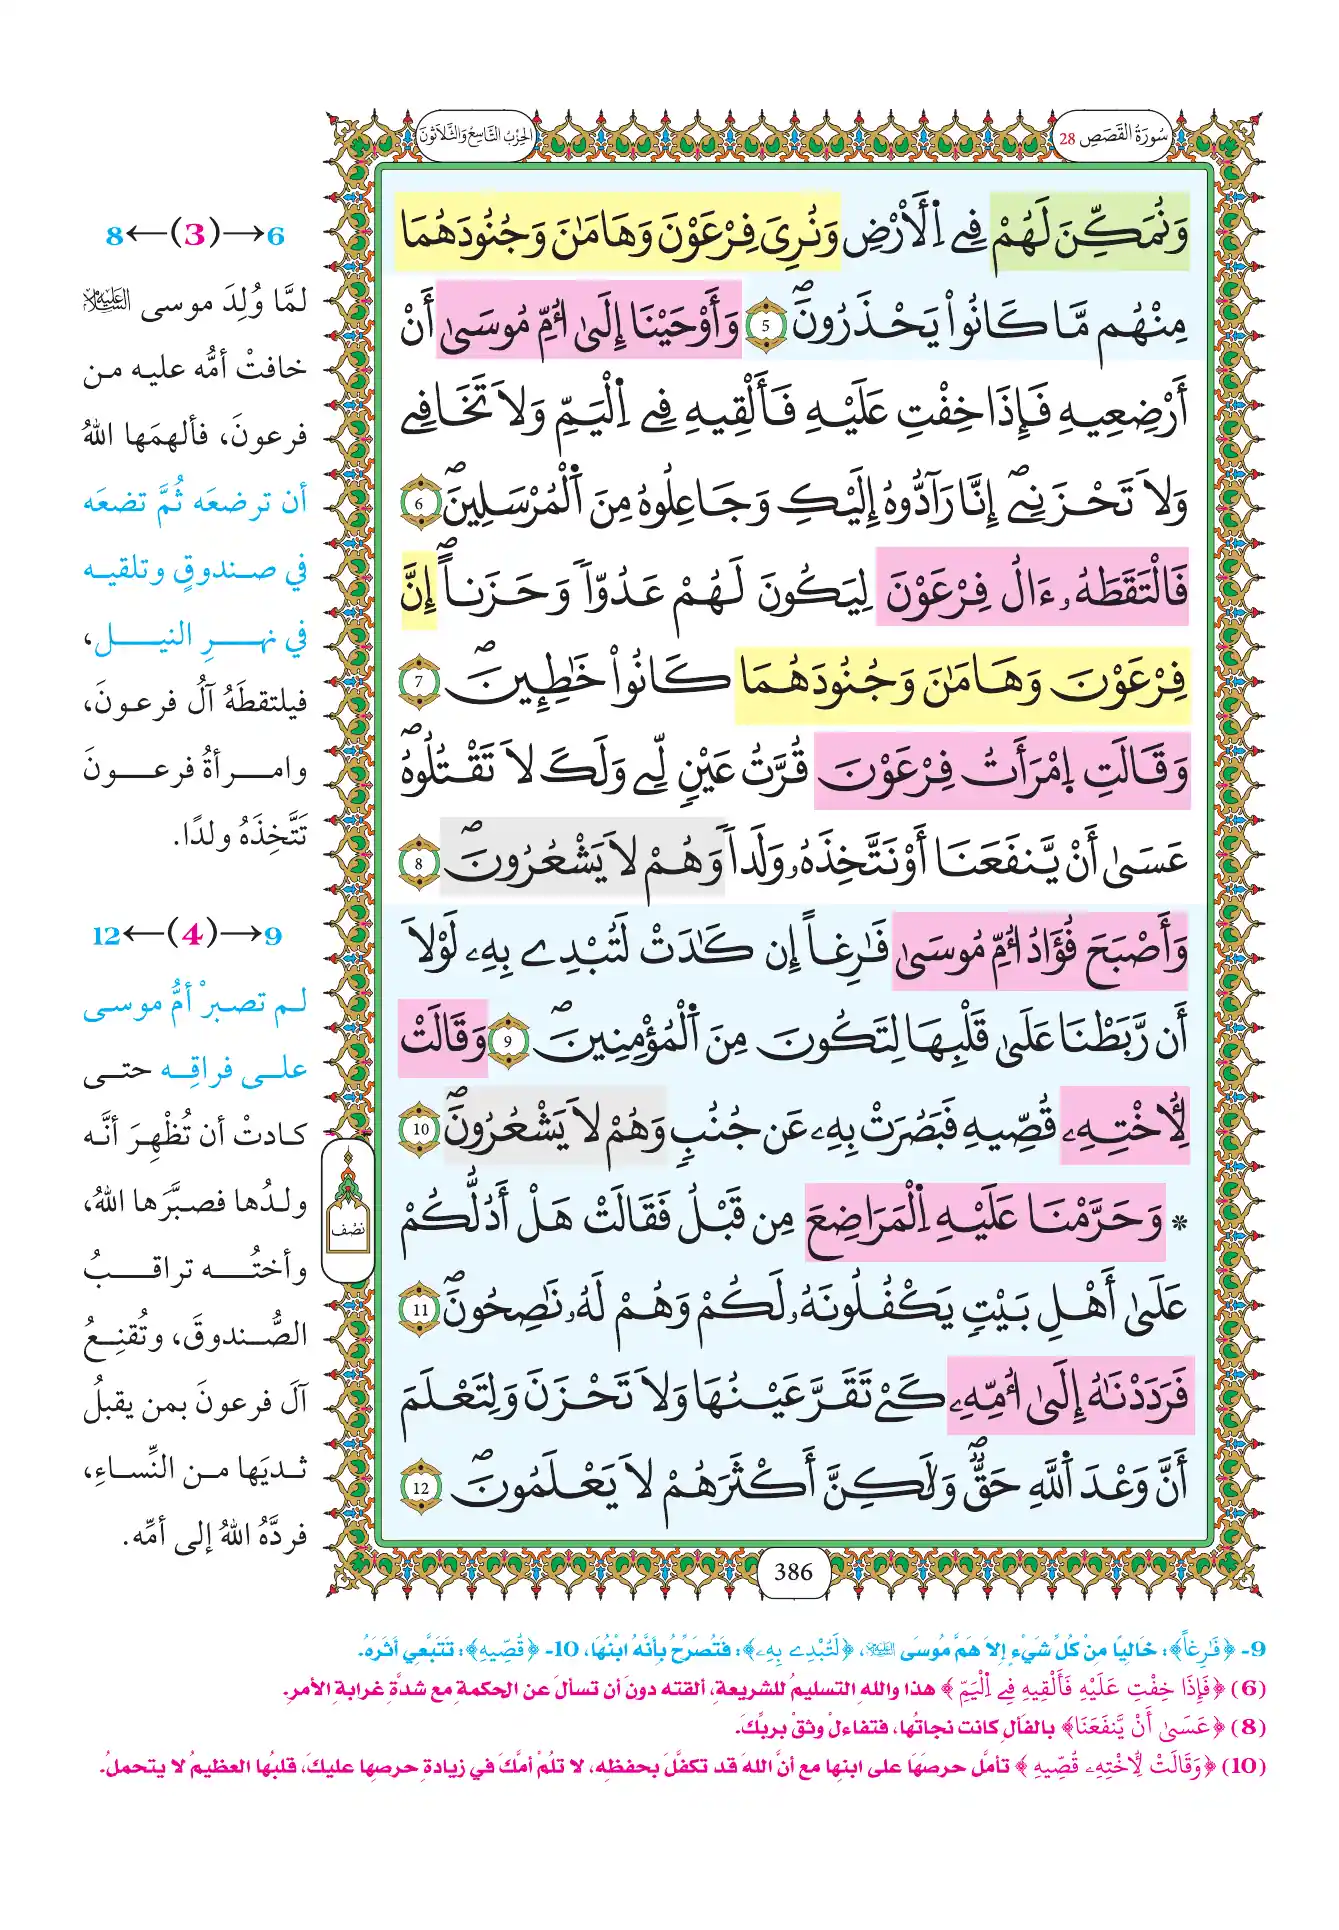 سُورَةُ القَصَصِ 28
الحِزْبُ التَّاسِعُ وَالثَّلَاثُونَ
وَنُمَكِّنَ لَهُمْ فِے اِ۬لَارْضِ وَنُرِيَ فِرْعَوْنَ وَهَامَٰنَ وَجُنُودَهُمَا
مِنْهُم مَّا كَانُواْ يَحْذَرُونَۖ 5 وَأَوْحَيْنَا إِلَىٰ أُمِّ مُوسَىٰ أَنَ
اَرْضِعِيهِ فَإِذَا خِفْتِ عَلَيْهِ فَأَلْقِيهِ فِے اِ۬لْيَمِّ وَلَا تَخَافِے
وَلَا تَحْزَنِےۖ إِنَّا رَآدُّوهُ إِلَيْكِ وَجَاعِلُوهُ مِنَ اَ۬لْمُرْسَلِينَۖ 6
فَالْتَقَطَهُۥ ءَالُ فِرْعَوْنَ لِيَكُونَ لَهُمْ عَدُوّاً وَحَزَناًۖ إِنَّ
فِرْعَوْنَ وَهَامَٰنَ وَجُنُودَهُمَا كَانُواْ خَٰطِـِٕينَۖ 7
وَقَالَتِ اِ۪مْرَأَتُ فِرْعَوْنَ قُرَّتُ عَيْنٖ لِّے وَلَكَ لَا تَقْتُلُوهُۖ
عَسَىٰ أَنْ يَّنفَعَنَا أَوْ نَتَّخِذَهُۥ وَلَداً وَهُمْ لَا يَشْعُرُونَۖ 8
وَأَصْبَحَ فُؤَادُ أُمِّ مُوسَىٰ فَٰرِغاً إِن كَادَتْ لَتُبْدِے بِهِۦ لَوْلَا
أَن رَّبَطْنَا عَلَىٰ قَلْبِهَا لِتَكُونَ مِنَ اَ۬لْمُؤْمِنِينَۖ 9 وَقَالَتْ
لِأُخْتِهِۦ قُصِّيهِ فَبَصُرَتْ بِهِۦ عَن جُنُبٖ وَهُمْ لَا يَشْعُرُونَۖ 10
* وَحَرَّمْنَا عَلَيْهِ اِ۬لْمَرَاضِعَ مِن قَبْلُ فَقَالَتْ هَلْ أَدُلُّكُمْ
نصف
عَلَىٰ أَهْلِ بَيْتٖ يَكْفُلُونَهُۥ لَكُمْ وَهُمْ لَهُۥ نَٰصِحُونَۖ 11
فَرَدَدْنَٰهُ إِلَىٰ أُمِّهِۦ كَےْ تَقَرَّ عَيْنُهَا وَلَا تَحْزَنَ وَلِتَعْلَمَ
أَنَّ وَعْدَ اَ۬للَّهِ حَقّٞۖ وَلَٰكِنَّ أَكْثَرَهُمْ لَا يَعْلَمُونَۖ 12
386
6→(3)←8
لمَّا وُلِدَ موسى عليه السلام
خافتْ أمُّه عليه من
فرعونَ، فألهمَها اللهُ
أن ترضعَه ثُمَّ تضعَه
في صندوقٍ وتلقيه
في نهرِ النيل،
فيلتقطَهُ آلُ فرعونَ،
وامرأةُ فرعونَ
تَتَّخِذَهُ ولدًا.
9→(4)←12
لم تصبرْ أمُّ موسى
على فراقِه حتى
كادتْ أن تُظْهِرَ أنَّه
ولدُها فصبَّرَها اللهُ،
وأختُه تراقبُ
الصُّندوقَ، وتُقنِعُ
آلَ فرعونَ بمن يقبلُ
ثديَها من النِّساءِ،
فردَّهُ اللهُ إلى أمِّه.
9- ﴿فَٰرِغاً﴾: خَاليًا مِنْ كُلِّ شَيْءٍ إلا هَمَّ مُوسَى عليه السلام، ﴿لَتُبْدِے بِهِۦ﴾: فَتُصَرِّحُ بِأنَّهُ ابْنُهَا، 10- ﴿قُصِّيهِ﴾: تَتَبَّعِي أثَرَهُ.
(6) ﴿فَإِذَا خِفْتِ عَلَيْهِ فَأَلْقِيهِ فِے اِ۬لْيَمِّ﴾ هذا واللهِ التسليمُ للشريعةِ، ألقته دونَ أن تسألَ عن الحكمةِ مع شدةَّ غرابةِ الأمرِ.
(8) ﴿عَسَىٰ أَنْ يَّنفَعَنَا﴾ بالفَألِ كانت نجاتُها، فتفاءلْ وثقْ بربِّكَ.
(10) ﴿وَقَالَتْ لِأُخْتِهِۦ قُصِّيهِ﴾ تأمَّل حرصَهَا على ابنِها مع أنَّ اللهَ قد تكفَّلَ بحفظِه، لا تلُمْ أمَّكَ في زيادةِ حرصِها عليكَ، قلبُها العظيمُ لا يتحملُ.